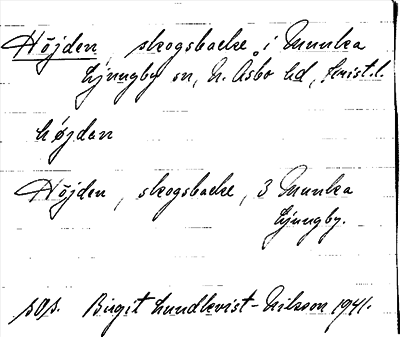 Höjden, skogsbacke i Munka
Ljungby sn, N. Åsbo hd, Krist. l.
höjden
Höjden, skogsbacke, 3 Munka
Ljungby.
sOs. Birgit Lundkvist-Nilsson 1941.